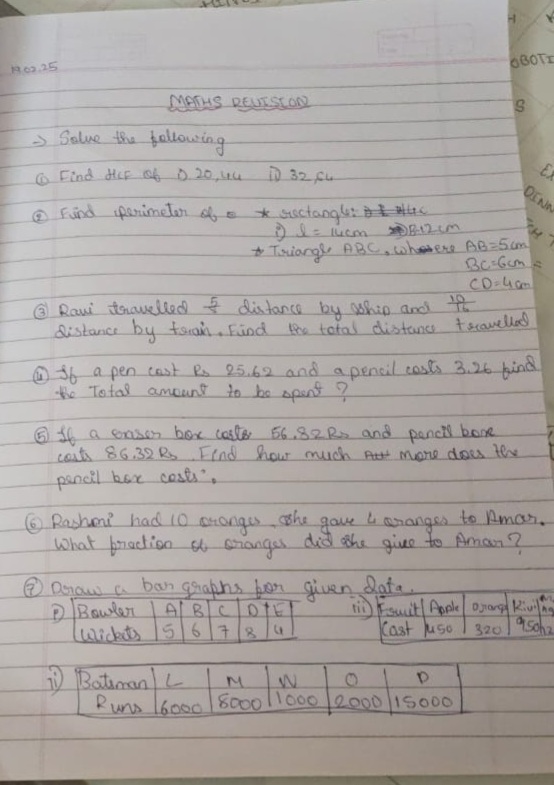 19.02.25
MATHS REVISION
→ Solve the following
① Find HCF of i) 20,44 ii) 32,64
② Find perimeter of * rectangle:
i) l = 14cm B=12cm
* Triangle ABC, where AB=5cm
BC=6cm
CD=4cm
③ Ravi travelled distance by ship and
distance by train. Find the total distance travelled
④ If a pen cost Rs 25.62 and a pencil costs 3.26 find
the Total amount to be spent?
⑤ If a eraser box costs 56.82Rs and pencil boxe
costs 86.32Rs Find how much more does the
pencil box costs?
⑥ Rashmi had 10 oranges she gave 4 oranges to Amar.
What fraction of oranges did she give to Aman?
⑦ Draw a bar graphs for given data.
i) Bowler A B C D E
Wickets 5 6 7 8 4
iii) Fruit Apple Orange Kiwi
Cost 450 320
ii) Batsman L M N O P
Runs 6000 8000 1000 2000 15000